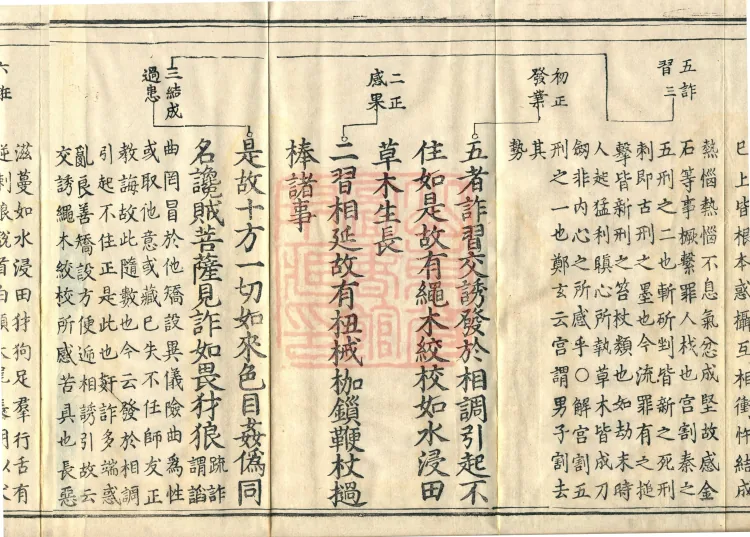 巳上皆根本惑攝互相衝忤結成
五詐
習三
熱惱熱惱不息氣忿成堅故感金
石等事橛繫罪人栈也宮割秦之
五刑之二也斬斫剉皆新之死刑
刺即古刑之墨也今流罪有之搥
擊皆新刑之笞杖類也如劫末時
人起猛利瞋心所執草木皆成刀
劒非内心之所感乎〇解宮割五
刑之一也鄭玄云宮謂男子割去
其
勢
初正
發業
五者詐習交誘發於相調引起不
住如是故有繩木絞校如水浸田
草木生長
二正
感果
二習相延故有杻械枷鎖鞭杖撾
棒諸事
三結成
過患
是故十方一切如來色目姦偽同
名讒賊菩薩見詐如畏犲狼
疏詐
謂諂
曲罔冒於他矯設異儀險曲爲性
或取他意或藏巳失不任師友正
教誨故此隨數也今云發於相調
引起不住正是此也姧詐多端惑
亂良善矯設方便逓相誘引故云
交誘繩木絞校所感苦具也長惡
六在
滋蔓如水浸田犲狗足羣行舌有